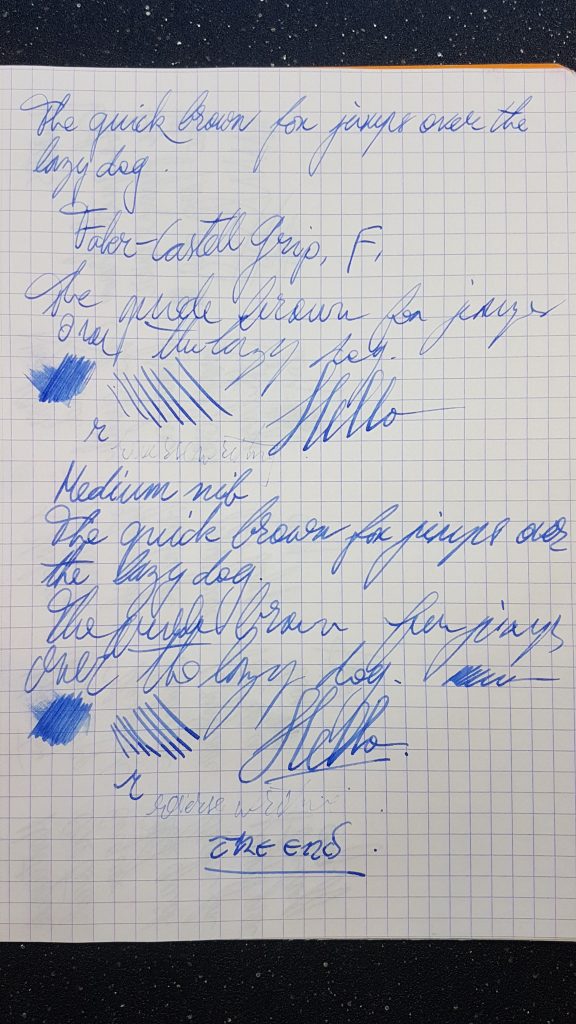 The quick brown fox jumps over the
lazy dog.
Faber-Castell Grip, F,
The quick brown fox jumps
over the lazy dog.
Hello
r
reverse writing
Medium nib
The quick brown fox jumps over
the lazy dog.
The quick brown fox jumps
over the lazy dog.
Hello.
r
reverse writing
THE END.